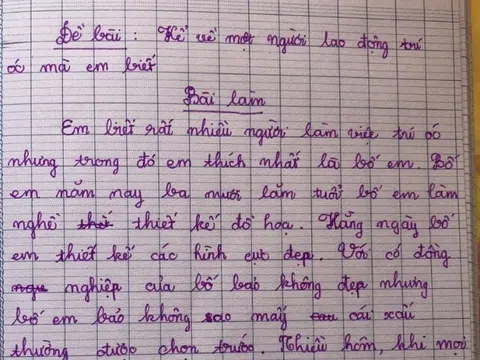 Đề bài : Kể về một người lao động trí
óc mà em biết
Bài làm
Em biết rất nhiều người làm việc trí óc
nhưng trong đó em thích nhất là bố em. Bố
em năm nay ba mươi lăm tuổi bố em làm
nghề thiết kế đồ hoạ. Hằng ngày bố
em thiết kế các hình cực đẹp. Với cô đồng
nghiệp của bố bảo không đẹp nhưng
bố em bảo không sao mấy cái xấu
thường được chọn trước. Nhiều hôm, khi mọi